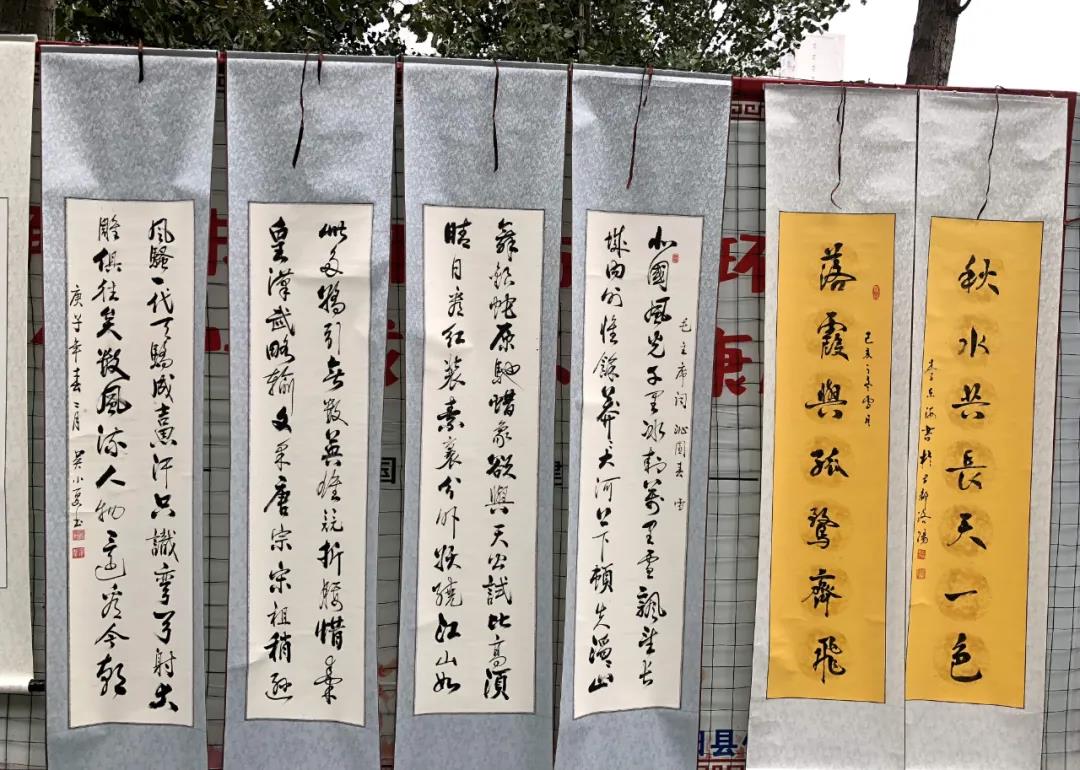 秋水共長天一色
落霞與孤鶩齊飛
毛主席词 沁園春 雪
北國風光千里冰封萬里雪飄望長
城内外惟餘莽々大河上下頓失滔々山
舞銀蛇原馳蜡象欲與天公試比高須
晴日看红装素裹分外妖繞江山如
此多嬌引无数英雄競折腰惜秦
皇漢武略輸文采唐宗宋祖稍逊
風騷一代天驕成吉思汗只識彎弓射大
雕俱往矣数風流人物還看今朝
庚子年春二月
国
康
县